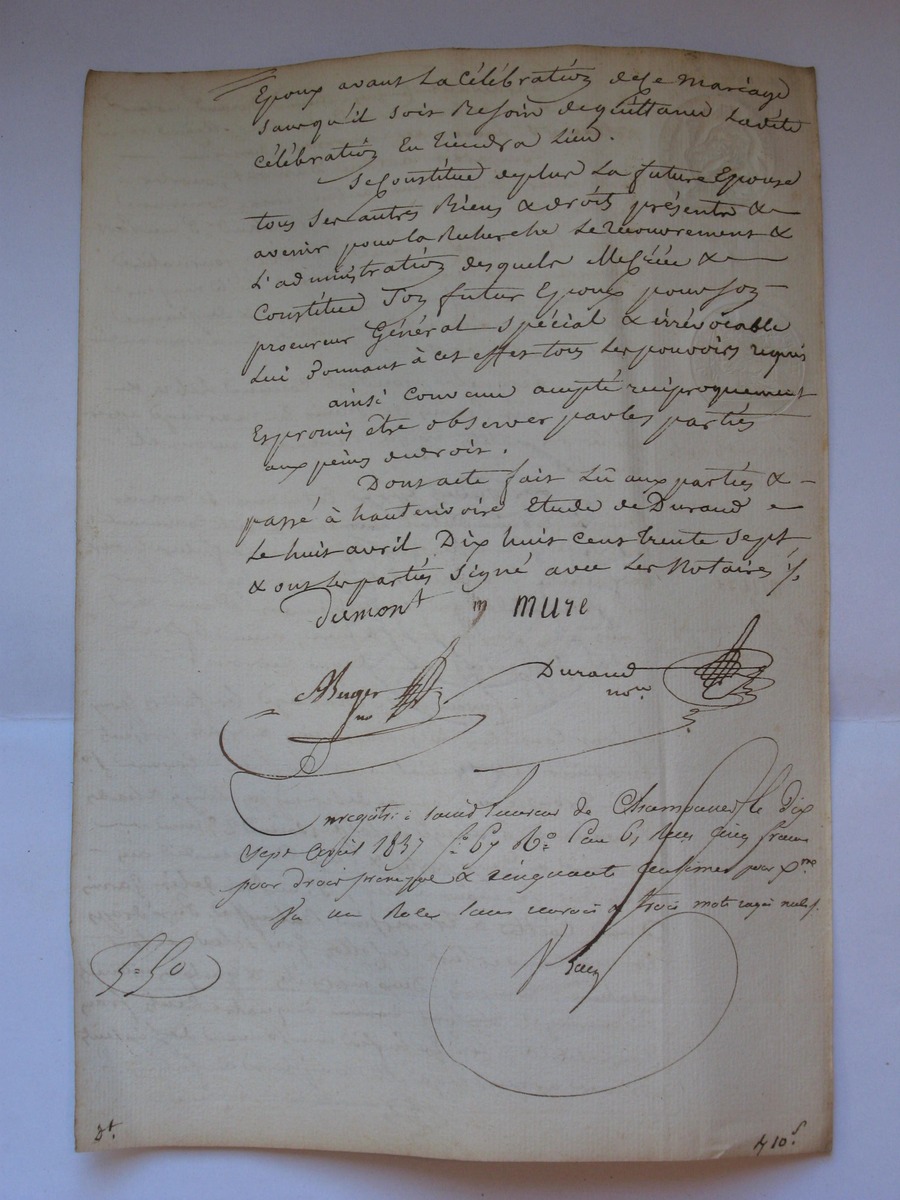 Epoux avant La Célébration de Ce Mariage
sans qu'il soit Besoin de quittance Ladite
Célébration En tiendra Lieu.
Se Constitue de plus La future Epouse
tous Ses autres Biens & droits présents &
avenir pour la Recherche Le recouvrement &
L'administration desquels Elle Crée &
Constitue Son futur Epoux pour Son
procureur Général Spécial & irrévocable
Lui donnant à cet effet tous Les pouvoirs requis
ainsi Convenu accepté réciproquement
Et promis être observer par les parties
aux peines de droit.
Dont acte fait Lû aux parties &
passé à hauterivoire Etude de Durand
Le huit avril Dix huit Cent trente Sept
& ont Les parties Signé avec Les Notaires ./.
Dumont m mure
Durand
nore
Berger
no
Enregistré à de le dix
sept avril 1837 fo 67 Ro Case 6, Reçu cinq francs
pour droit principal & cinquante centimes pour Xme
un Rôle sans renvoi & trois mots rayés nuls.
5=50